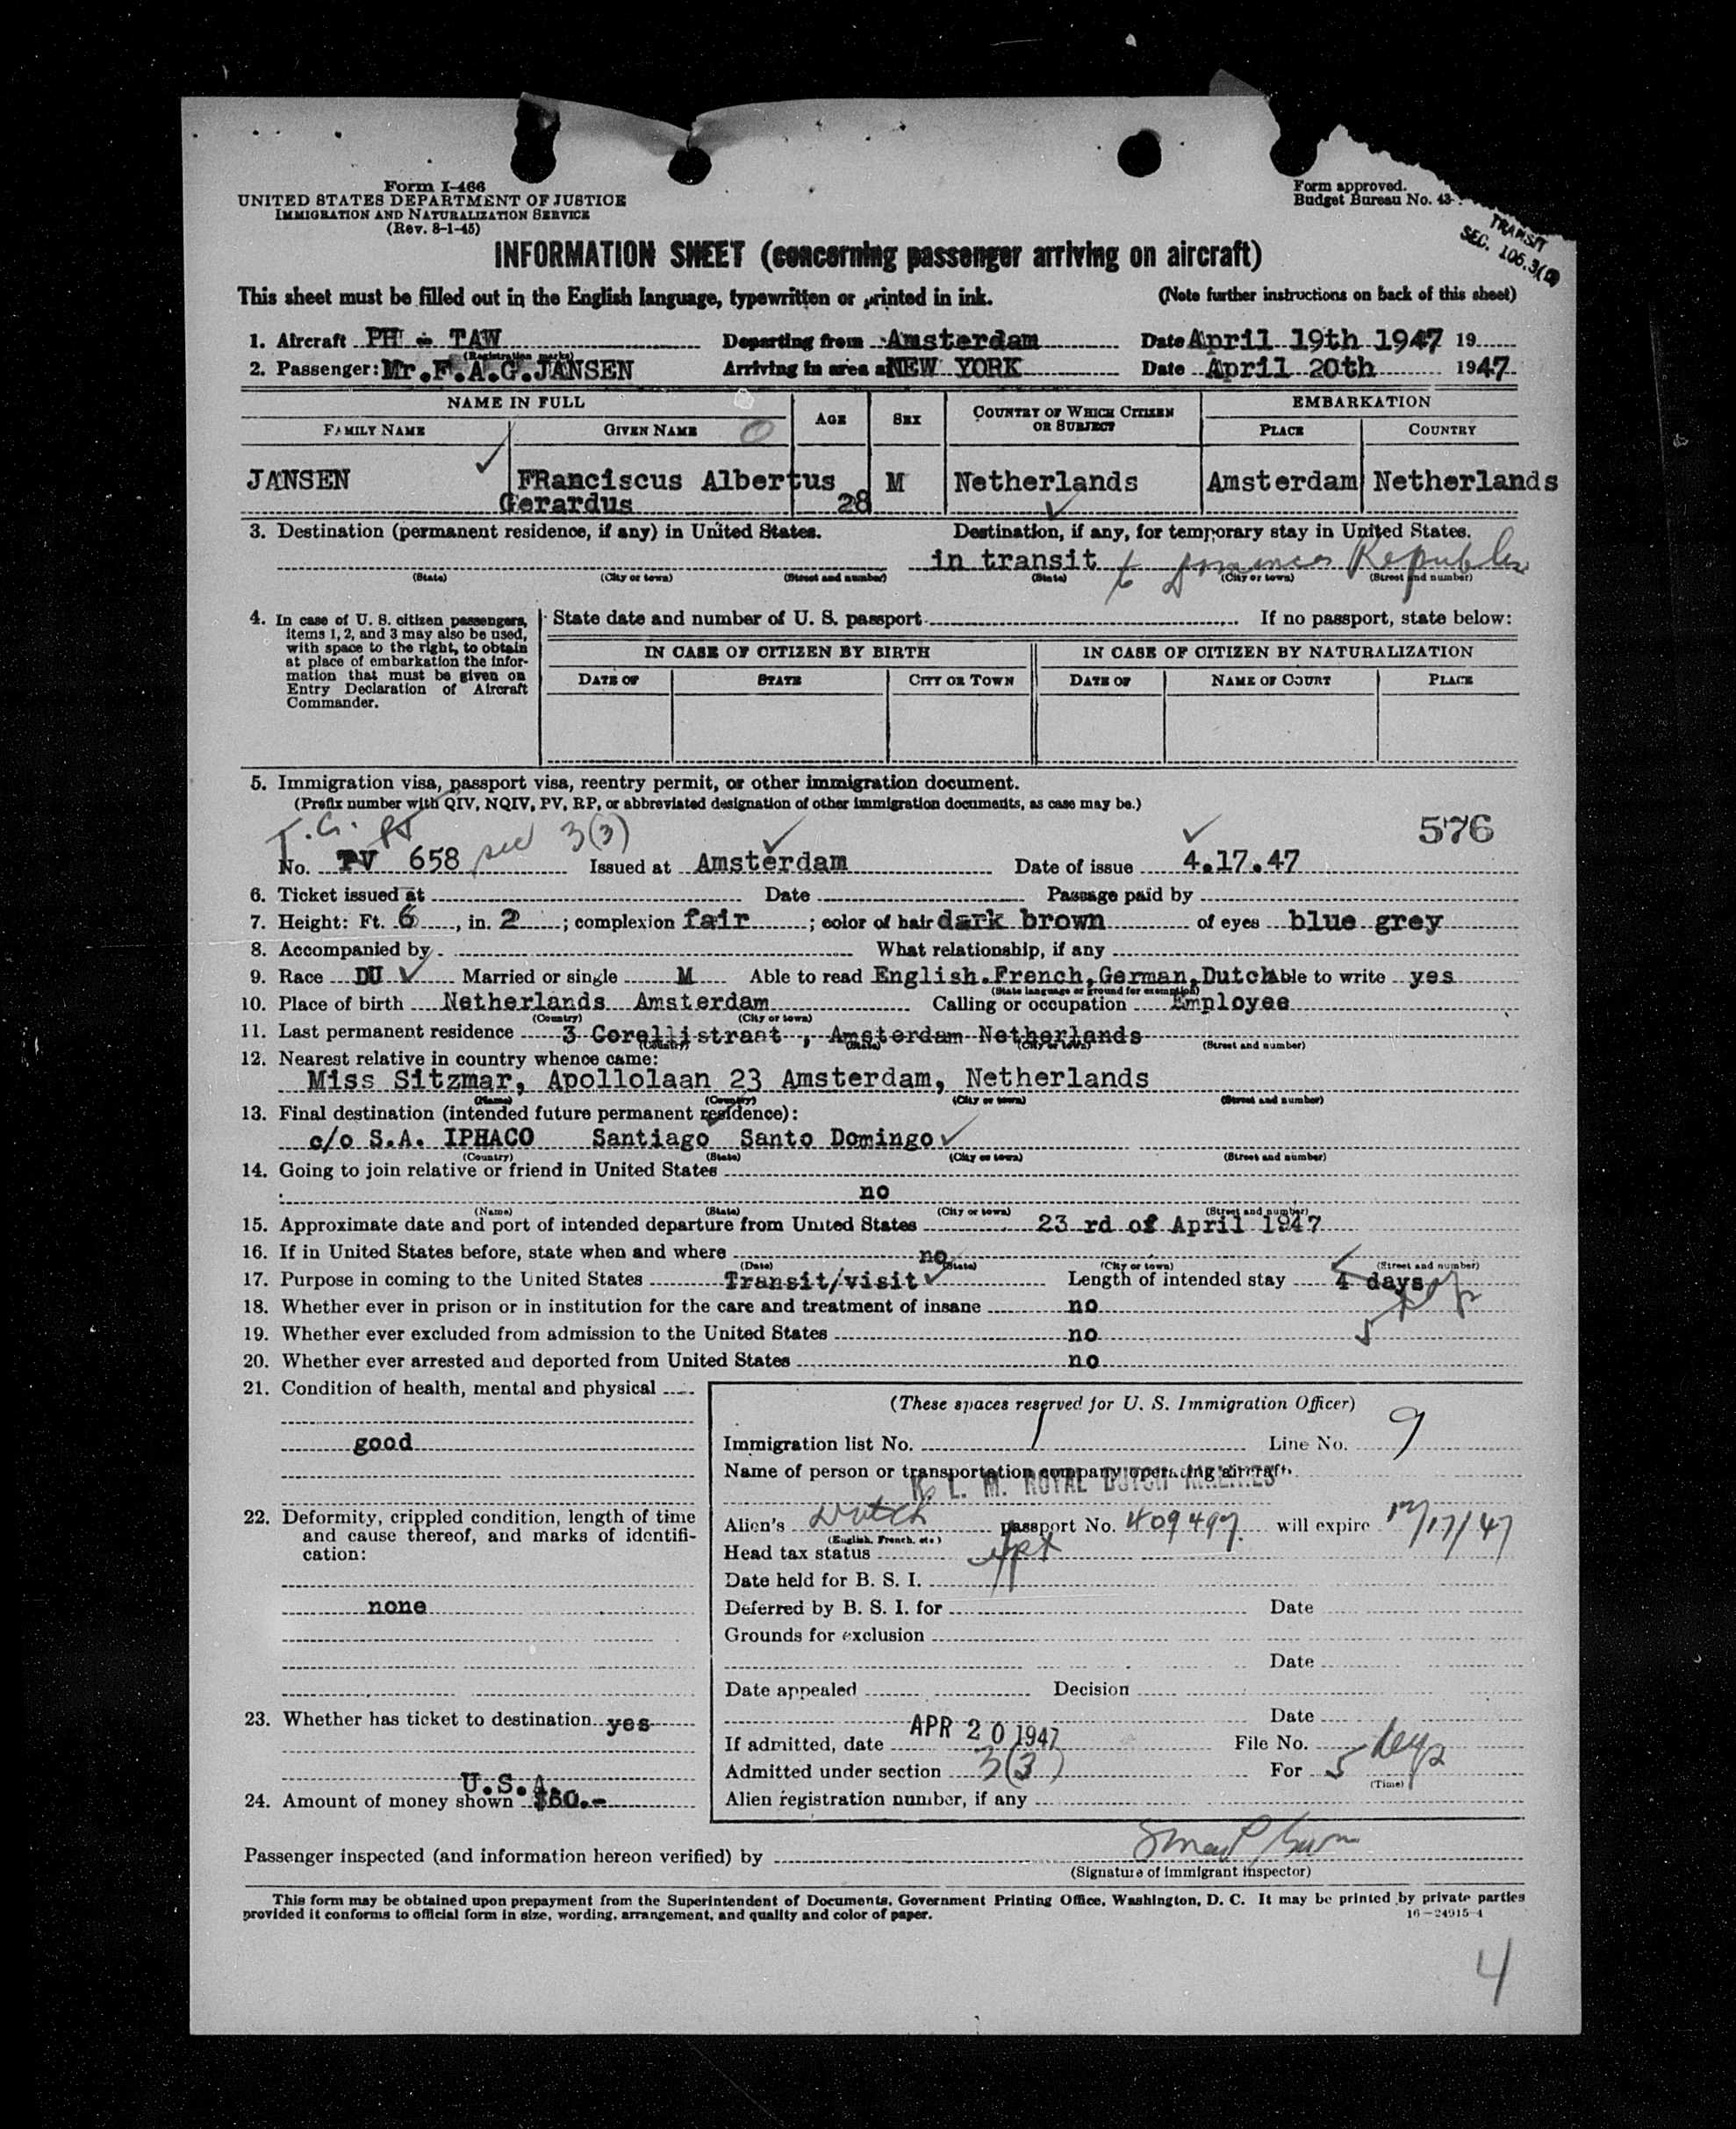 Form I-466
UNITED STATES DEPARTMENT OF JUSTICE
IMMIGRATION AND NATURALIZATION SERVICE
(Rev. 8-1-45)
Form approved.
Budget Bureau No. 43-
TRANSIT
SEC. 106.3(
INFORMATION SHEET (concerning passenger arriving on aircraft)
This sheet must be filled out in the English language, typewritten or printed in ink. (Note further instructions on back of this sheet)
1. Aircraft PH - TAW Departing from Amsterdam Date April 19th 1947 19
(Registration marks)
2. Passenger: Mr.F.A.G.JANSEN Arriving in area a NEW YORK Date April 20th 1947
NAME IN FULL AGE SEX COUNTRY OF WHICH CITIZEN OR SUBJECT EMBARKATION
FAMILY NAME GIVEN NAME PLACE COUNTRY
JANSEN FRanciscus Albertus M Netherlands Amsterdam Netherlands
Gerardus 28
3. Destination (permanent residence, if any) in United States. Destination, if any, for temporary stay in United States.
in transit to Republic
(State) (City or town) (Street and number) (State) (City or town) (Street and number)
4. In case of U. S. citizen passengers, items 1, 2, and 3 may also be used, with space to the right, to obtain at place of embarkation the information that must be given on Entry Declaration of Aircraft Commander.
State date and number of U. S. passport If no passport, state below:
IN CASE OF CITIZEN BY BIRTH IN CASE OF CITIZEN BY NATURALIZATION
DATE OF STATE CITY OR TOWN DATE OF NAME OF COURT PLACE
5. Immigration visa, passport visa, reentry permit, or other immigration document.
(Prefix number with QIV, NQIV, PV, RP, or abbreviated designation of other immigration documents, as case may be.)
3(3) 576
No. PV 658 Issued at Amsterdam Date of issue 4.17.47
6. Ticket issued at Date Passage paid by
7. Height: Ft. 6, in. 2; complexion fair; color of hair dark brown of eyes blue grey
8. Accompanied by What relationship, if any
9. Race DU Married or single M Able to read English.French,German,Dutch Able to write yes
(State language or ground for exemption)
10. Place of birth Netherlands Amsterdam Calling or occupation Employee
(Country) (City or town)
11. Last permanent residence 3 Corellistraat , Amsterdam Netherlands
(Country) (State) (City or town) (Street and number)
12. Nearest relative in country whence came:
Miss Sitzmar, Apollolaan 23 Amsterdam, Netherlands
(Name) (Country) (City or town) (Street and number)
13. Final destination (intended future permanent residence):
c/o S.A. IPHACO Santiago Santo Domingo
(Country) (State) (City or town) (Street and number)
14. Going to join relative or friend in United States
no
(Name) (State) (City or town) (Street and number)
15. Approximate date and port of intended departure from United States 23 rd of April 1947
16. If in United States before, state when and where no
(Date) (State) (City or town) (Street and number)
17. Purpose in coming to the United States Transit/visit Length of intended stay 4 days
18. Whether ever in prison or in institution for the care and treatment of insane no
19. Whether ever excluded from admission to the United States no 5
20. Whether ever arrested and deported from United States no
21. Condition of health, mental and physical
good
22. Deformity, crippled condition, length of time and cause thereof, and marks of identification:
none
23. Whether has ticket to destination yes
U.S.A.
24. Amount of money shown $60.-
(These spaces reserved for U. S. Immigration Officer)
Immigration list No. 1 Line No. 9
Name of person or transportation company operating aircraft
K. L. M. ROYAL DUTCH AIRLINES
Alien's Dutch passport No. 409497 will expire 12/17/47
(English, French, etc.)
Head tax status
Date held for B. S. I.
Deferred by B. S. I. for Date
Grounds for exclusion
Date
Date appealed Decision
Date
If admitted, date APR 20 1947 File No.
Admitted under section 3(3) For 5 days
(Time)
Alien registration number, if any
Passenger inspected (and information hereon verified) by
(Signature of immigrant inspector)
This form may be obtained upon prepayment from the Superintendent of Documents, Government Printing Office, Washington, D. C. It may be printed by private parties
provided it conforms to official form in size, wording, arrangement, and quality and color of paper. 16-24915-4
4